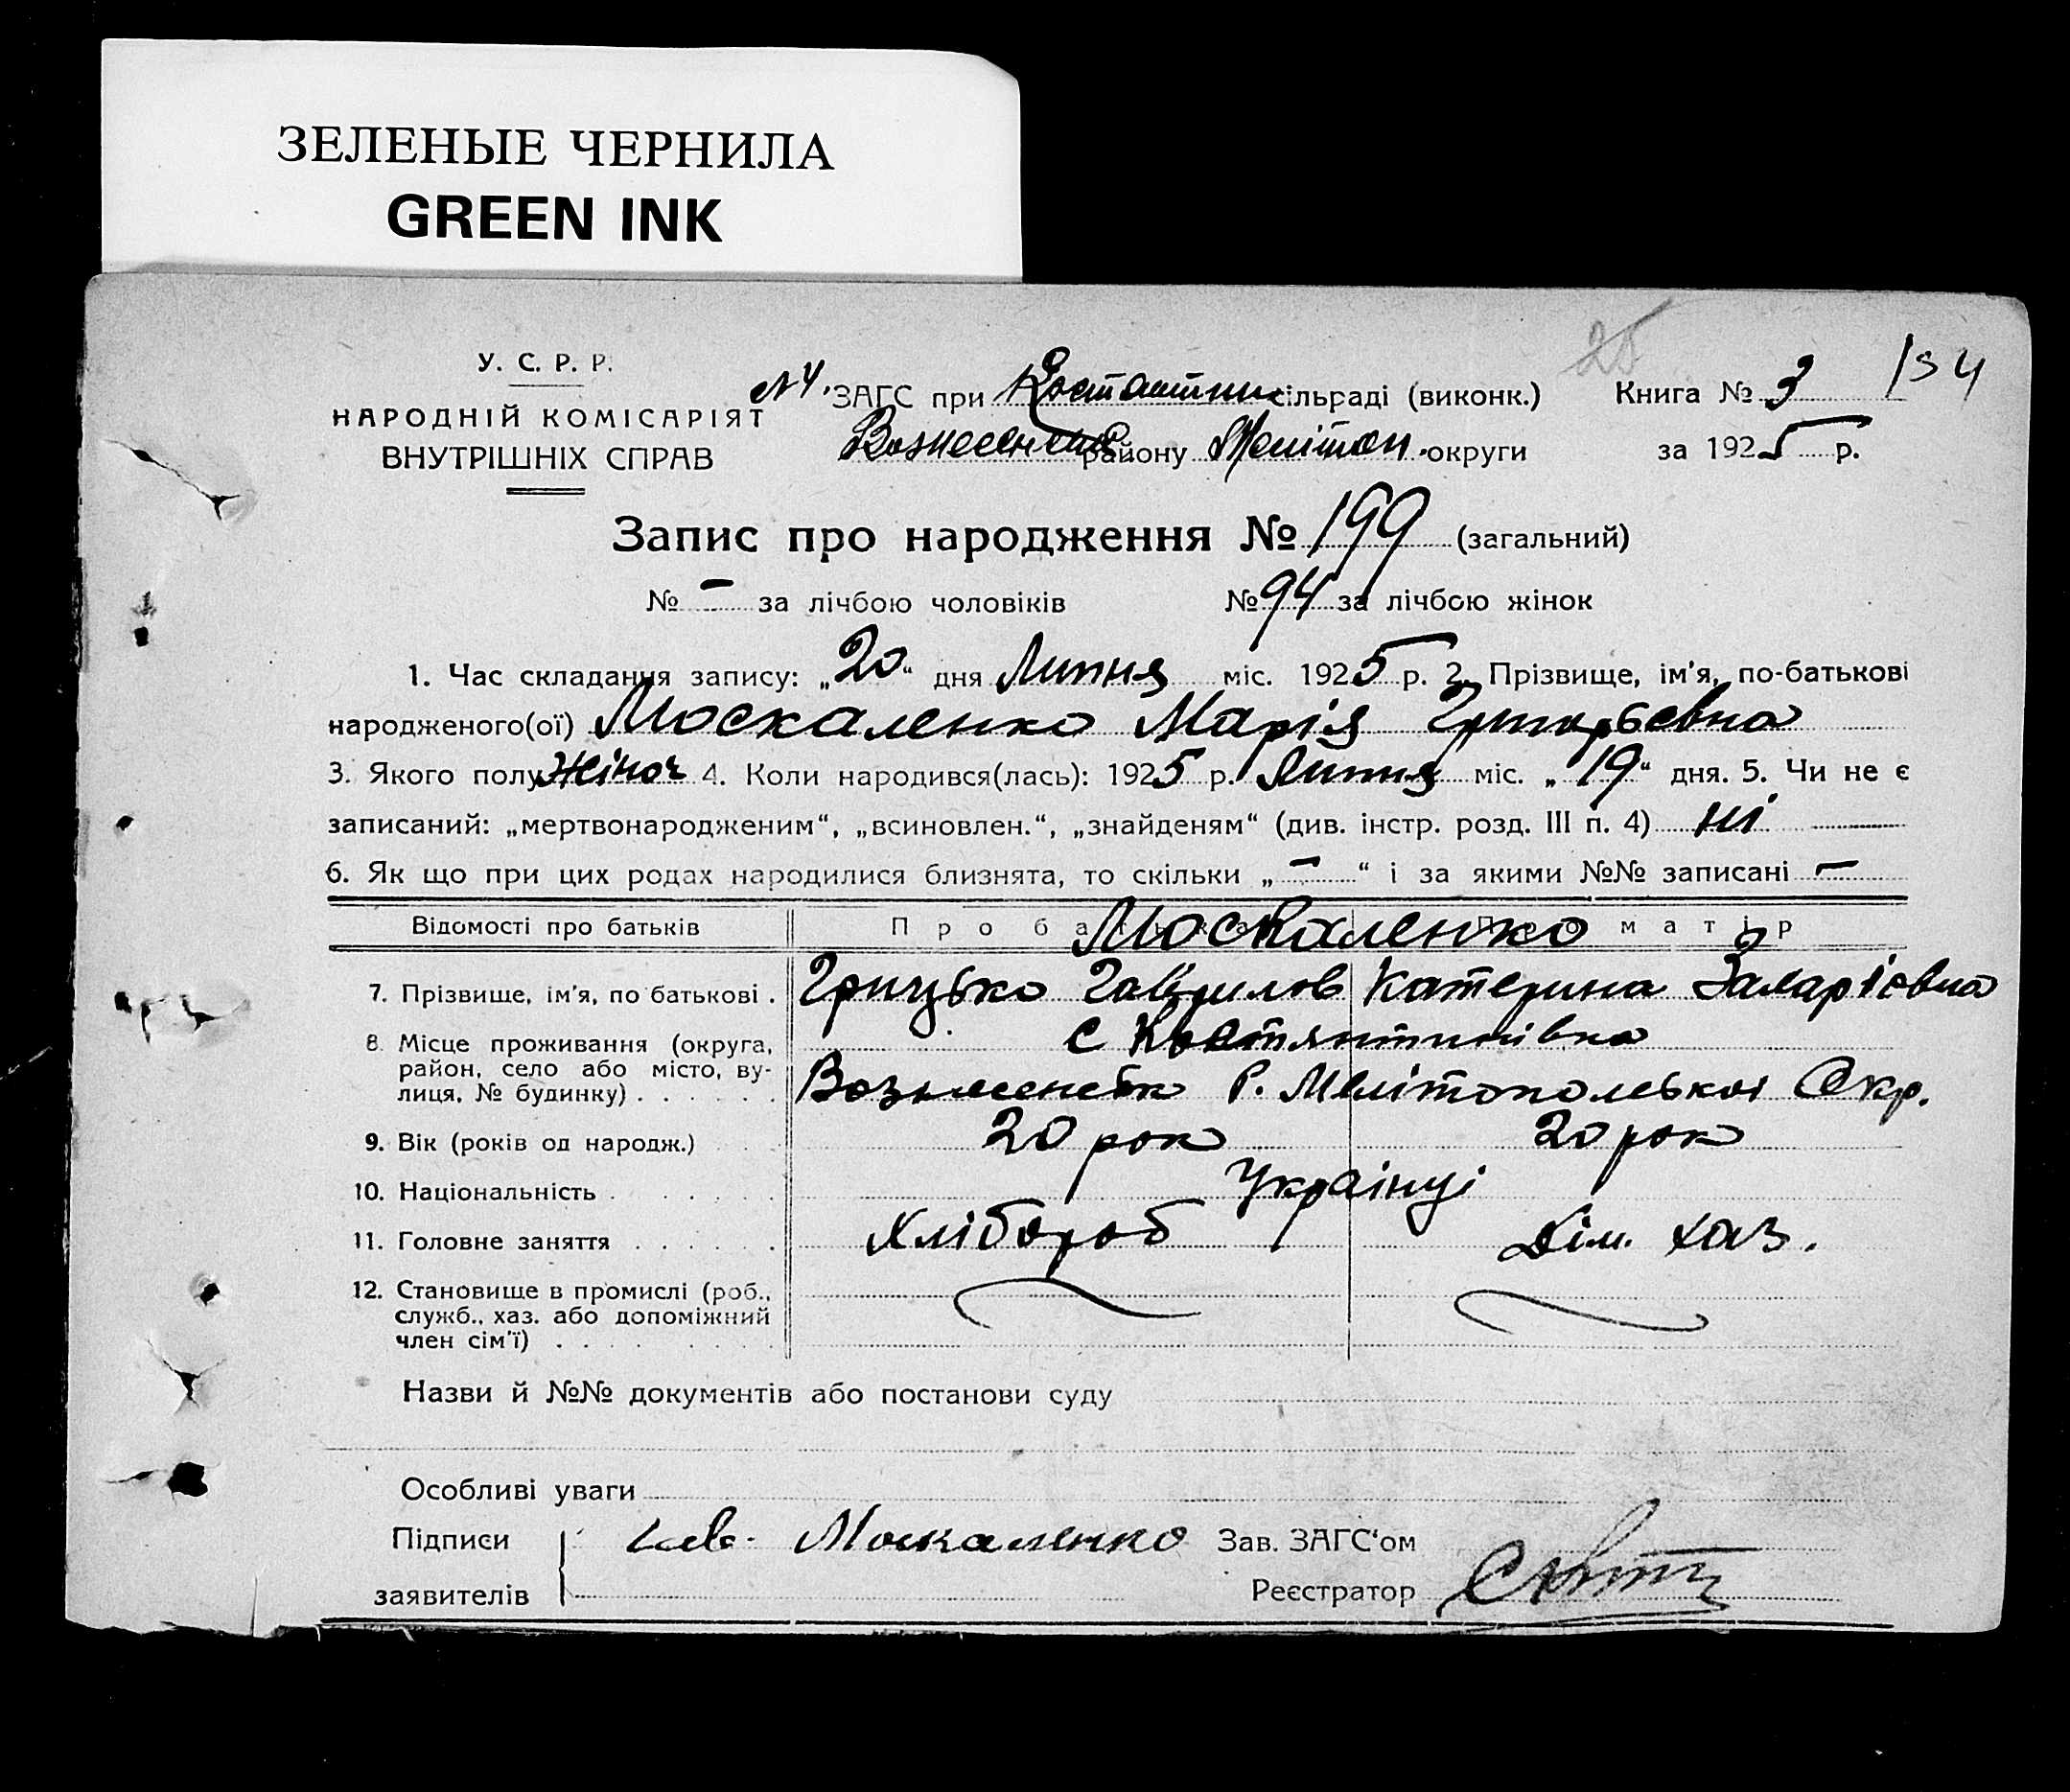 ЗЕЛЕНЫЕ ЧЕРНИЛА
GREEN INK
25
134
У. С. Р. Р.
НАРОДНІЙ КОМІСАРІЯТ
ВНУТРІШНІХ СПРАВ
№4. ЗАГС при Костантин сільраді (виконк.)
Книга № 3
Вознесенськ району Меліт округи
за 1925 р.
Запис про народження № 199 (загальний)
№ - за лічбою чоловіків № 94 за лічбою жінок
1. Час складання запису: „20“ дня Липня міс. 1925 р. 2. Прізвище, ім'я, по-батькові
народженого(ої) Москаленко Марія Григорьевна
3. Якого полу Жіноч 4. Коли народився(лась): 1925 р. Липня міс. „19“ дня. 5. Чи не є
записаний: „мертвонародженим“, „всиновлен.“, „знайденям“ (див. інстр. розд. III п. 4) ні
6. Як що при цих родах народилися близнята, то скільки „-“ і за якими №№ записані -
Відомості про батьків Про батька Про матір
Москаленко
7. Прізвище, ім'я, по батькові . Грицько Гаврилов Катерина Захарієвна
8. Місце проживання (округа, с Костянтинівка
район, село або місто, ву-
лиця, № будинку) . . . . . . Вознесенськ Р. Мелітопольскоі Окр.
9. Вік (років од народж.) 20 рок 20 рок
10. Національність . . . . . . Українці
11. Головне заняття . . . . . . Хлібороб Дім. хаз.
12. Становище в промислі (роб.,
служб., хаз. або допоміжний
член сім'ї) . . . . . . . .
Назви й №№ документів або постанови суду
Особливі уваги
Підписи Москаленко Зав. ЗАГС'ом
заявителів Реєстратор